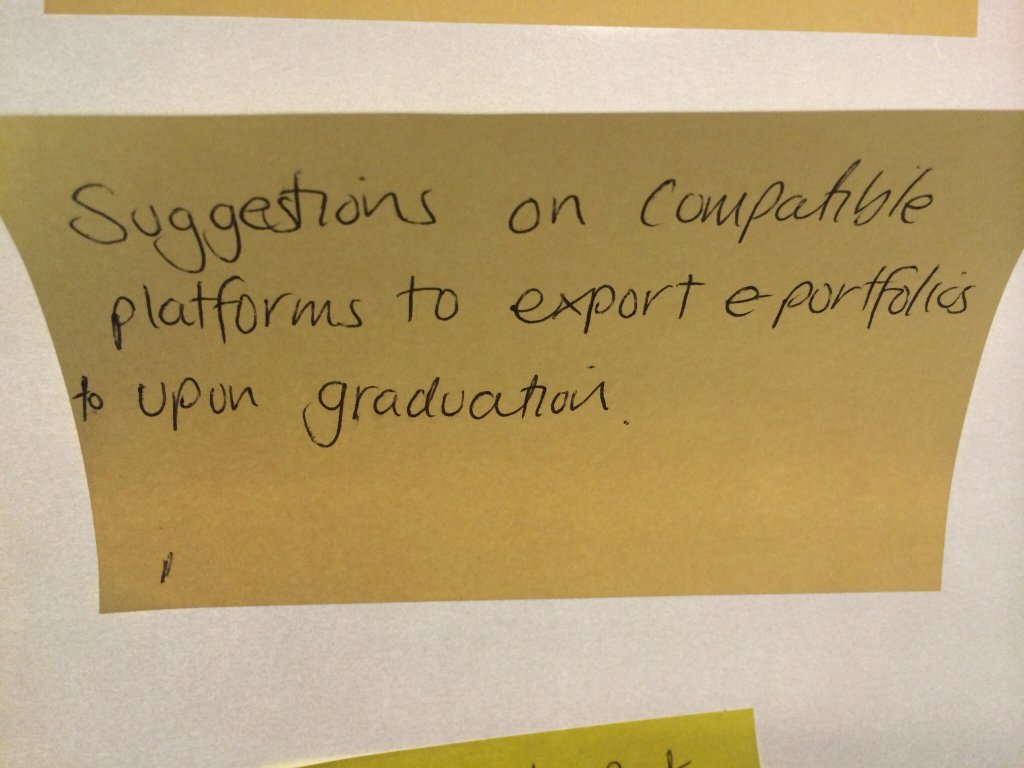 Suggestions on compatible
platforms to export e-portfolios
to upon graduation.